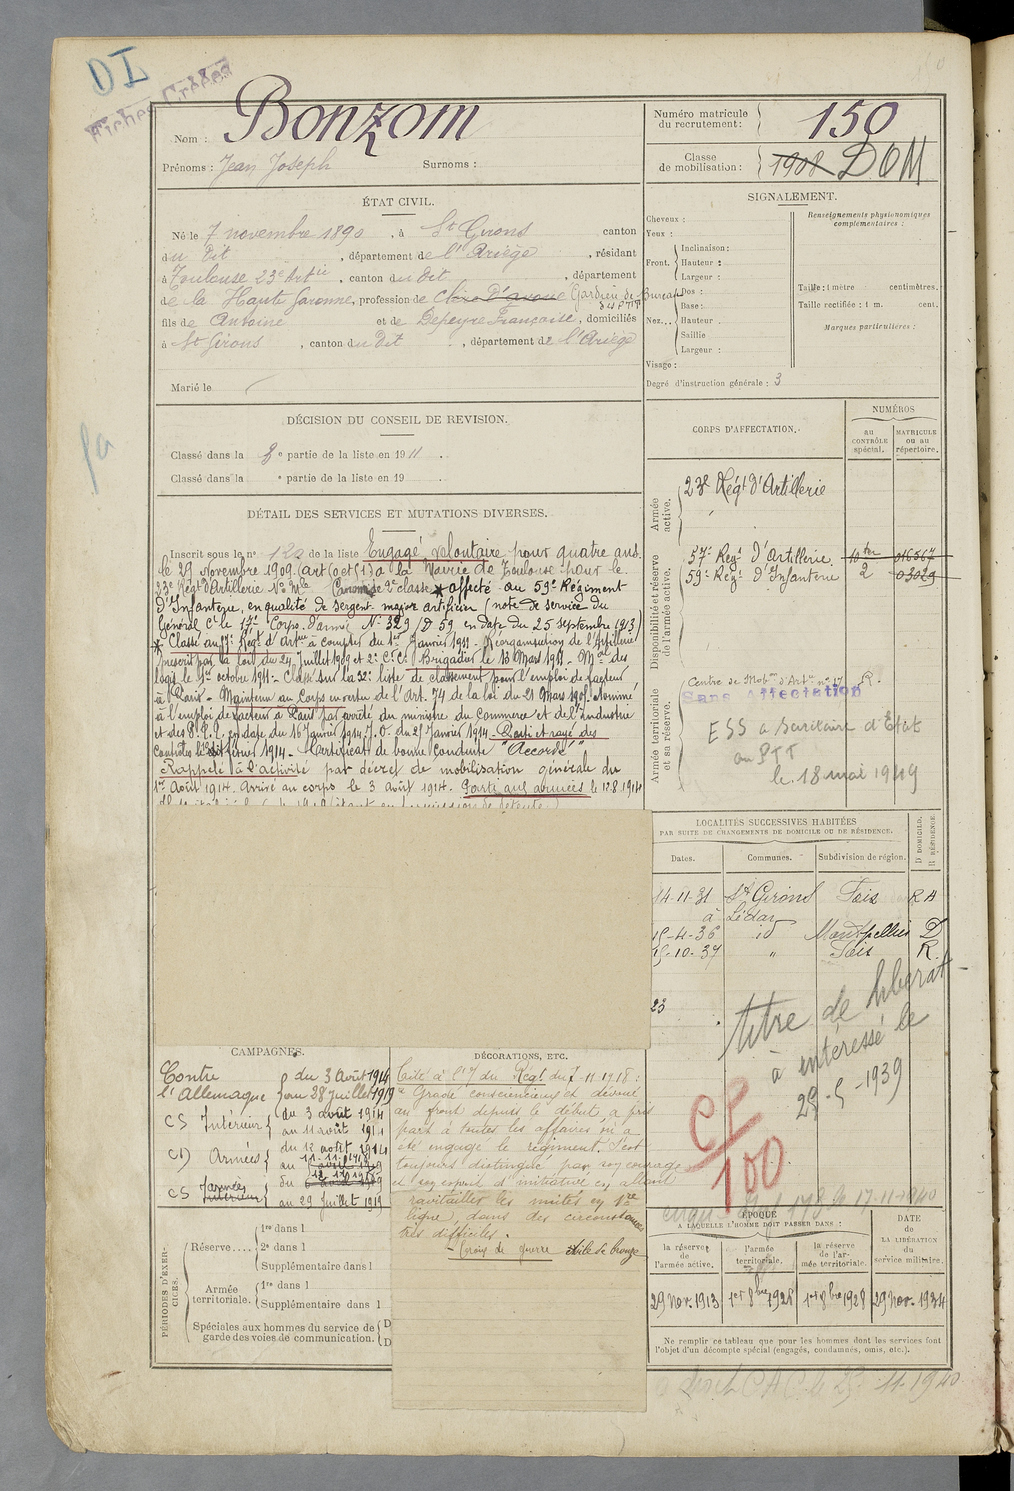 DI
Fiches Créées
Nom : Bonzom
Prénoms : Jean Joseph Surnoms :
Numéro matricule du recrutement : 150
Classe de mobilisation : 1908 DOM
ÉTAT CIVIL.
Né le 7 novembre 1890, à St Girons canton
du dit, département de l'Ariège, résidant
à Toulouse 23e Artie, canton du dit, département
de la Haute Garonne, profession de Clerc d'avoué Gardien de Bureau
des PTT
fils de Antoine et de Depeyre Françoise, domiciliés
à St Girons, canton du dit, département de l'Ariège
Marié le
SIGNALEMENT.
Cheveux :
Yeux :
Front. Inclinaison :
Hauteur :
Largeur :
Nez... Dos :
Base :
Hauteur
Saillie
Largeur :
Visage :
Degré d'instruction générale : 3
Renseignements physionomiques complémentaires :
Taille : 1 mètre centimètres.
Taille rectifiée : 1 m. cent.
Marques particulières :
DÉCISION DU CONSEIL DE REVISION.
Classé dans la 3e partie de la liste en 1911.
Classé dans la e partie de la liste en 19 .
DÉTAIL DES SERVICES ET MUTATIONS DIVERSES.
Inscrit sous le n° de la liste Engagé volontaire pour quatre ans
le 29 novembre 1909 (art à la Mairie de Toulouse pour le
23e Régt d'Artillerie No Mle 2e classe * affecté au 59e Régiment
d'Infanterie, en qualité de sergent major artificier (note de service du
Général Ct le 17e Corps d'armée No 329/D 59 en date du 25 septembre 1913)
* Classé au Régt d'Artie à compter du 1er Janvier 1911 - Réorganisation de l'artillerie
prescrit par la loi du 24 Juillet 1909 et Brigadier le 13 Mars 1911 - Mal des
logis le 1er octobre 1911 - Classé sur la 32e liste de classement pour l'emploi de facteur
à Paris - Maintenu au Corps en vertu de l'art. 74 de la loi du 21 Mars 1905. Nommé
à l'emploi de facteur à Paris par arrêté du ministre du Commerce et de l'Industrie
et des P.T.T. en date du 16 Janvier 1914. J.O. du 27 Janvier 1914 - Parti et rayé des
contrôles le février 1914 - Certificat de bonne conduite "Accordé"
Rappelé à l'activité par décret de mobilisation générale du
1er Août 1914. Arrivé au corps le 3 août 1914. Parti aux armées le 12.8.1914
CORPS D'AFFECTATION.
NUMÉROS
AU CONTRÔLE spécial.
MATRICULE ou au répertoire.
Armée active.
23e Régt d'Artillerie
Disponibilité et réserve de l'armée active.
57e Régt d'Artillerie. 10 ter 016567
59e Régt d'Infanterie 2 03029
Armée territoriale et sa réserve.
Centre de Mobon d'Artie n° 17 R.
Sans Affectation
ESS a Secrétaire d'Etat
au PTT
le 18 mai 1949
LOCALITÉS SUCCESSIVES HABITÉES
PAR SUITE DE CHANGEMENTS DE DOMICILE OU DE RÉSIDENCE.
Dates. Communes. Subdivision de région. D DOMICILE. R RÉSIDENCE.
14-11-31 St Girons Foix R A
à Lédar
15-4-36 id Montpellier D
15-10-37 " Foix R.
23
titre de libérat
à intéressé le
28-5-1939
CP
100
CAMPAGNES.
Contre l'Allemagne du 3 Août 1914
au 28 Juillet 1919
CS Intérieur du 3 août 1914
au 11 août 1914
CD Armées du 12 août 1914
au 11-11-1918
CS Intérieur du
au 29 Juillet 1919
DÉCORATIONS, ETC.
Cité à l'O du Régt du 7-11-1918 :
"Gradé consciencieux et dévoué
au front depuis le début, a pris
part à toutes les affaires où a
été engagé le régiment. S'est
toujours distingué par son courage
et son esprit d'initiative en allant
ravitailler les unités en 1re
ligne, dans des circonstances
très difficiles.
- Croix de guerre étoile de bronze
PÉRIODES D'EXERCICES.
Réserve.... 1re dans l
2e dans l
Supplémentaire dans l
Armée territoriale. 1re dans l
Supplémentaire dans l
Spéciales aux hommes du service de garde des voies de communication. D
D
ÉPOQUE
A LAQUELLE L'HOMME DOIT PASSER DANS :
la réserve de l'armée active.
l'armée territoriale.
la réserve de l'armée territoriale.
DATE de LA LIBÉRATION du service militaire.
29 Nov. 1913 1er 8bre 1928 1er 8bre 1928 29 Nov. 1934
Ne remplir ce tableau que pour les hommes dont les services font
l'objet d'un décompte spécial (engagés, condamnés, omis, etc.).